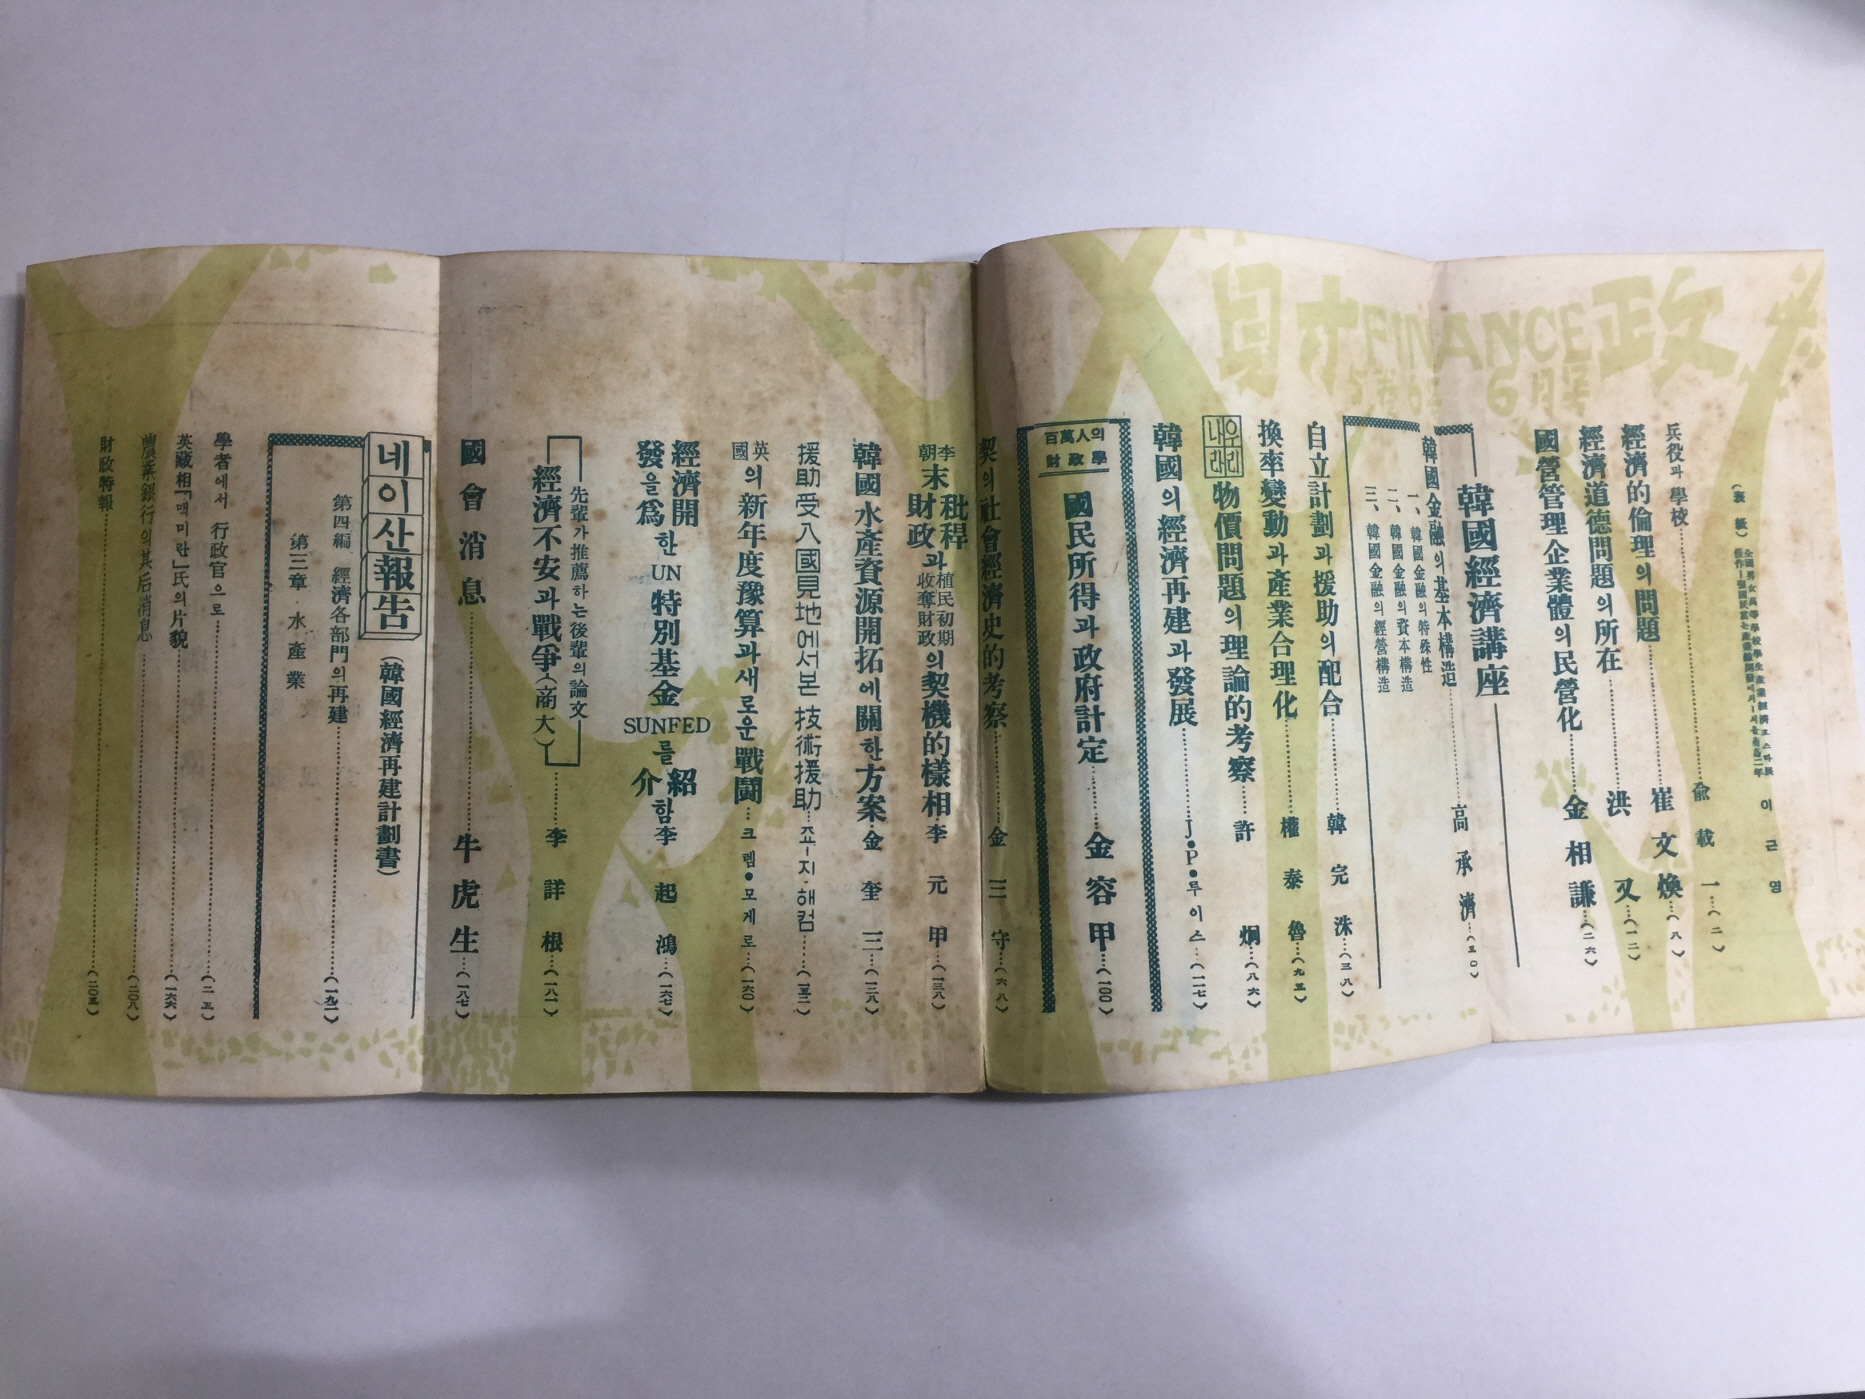 財 FINANCE 政
6月号
(表紙)
이 근 영
兵役과 學校 兪載一 (二)
經濟的倫理의 問題 崔文煥 (八)
經濟道德問題의 所在 洪又 (一二)
國營管理企業體의 民營化 金相謙 (二六)
韓國經濟講座 高承濟 (五〇)
韓國金融의 基本構造
一、韓國金融의 特殊性
二、韓國金融의 資本構造
三、韓國金融의 經營構造
自立計劃과 援助의 配合 韓完洙 (三八)
換率變動과 產業合理化 權泰魯 (九三)
우리나라 物價問題의 理論的考察 許炯 (八六)
韓國의 經濟再建과 發展 J•P•루이스 (一一七)
百萬人의 財政學
國民所得과 政府計定 金容甲 (100)
契의 社會經濟史的考察 金三守 (六八)
李朝末 秕稈財政과 植民初期收奪財政의 契機的樣相 李元甲 (一三八)
韓國水產資源開拓에 關한 方案 金奎三 (一三八)
援助受入國見地에서본 技術援助 죠-지·해컴 (一五二)
英國의 新年度豫算과 새로운 戰鬪 크렘•모게로 (一六〇)
經濟開發을 爲한 UN特別基金 SUNFED를 紹介함 李起鴻 (一六七)
先輩가 推薦하는 後輩의 論文
經濟不安과 戰爭 (商大) 李詳根 (一八一)
國會消息 牛虎生 (一八七)
네이산報告 (韓國經濟再建計劃書)
第四編 經濟各部門의 再建 (一九一)
第三章·水產業
學者에서 行政官으로 (二五)
英藏相「맥미란」氏의 片貌 (一六六)
農業銀行의 其后消息 (二〇八)
財政特報 (二〇五)